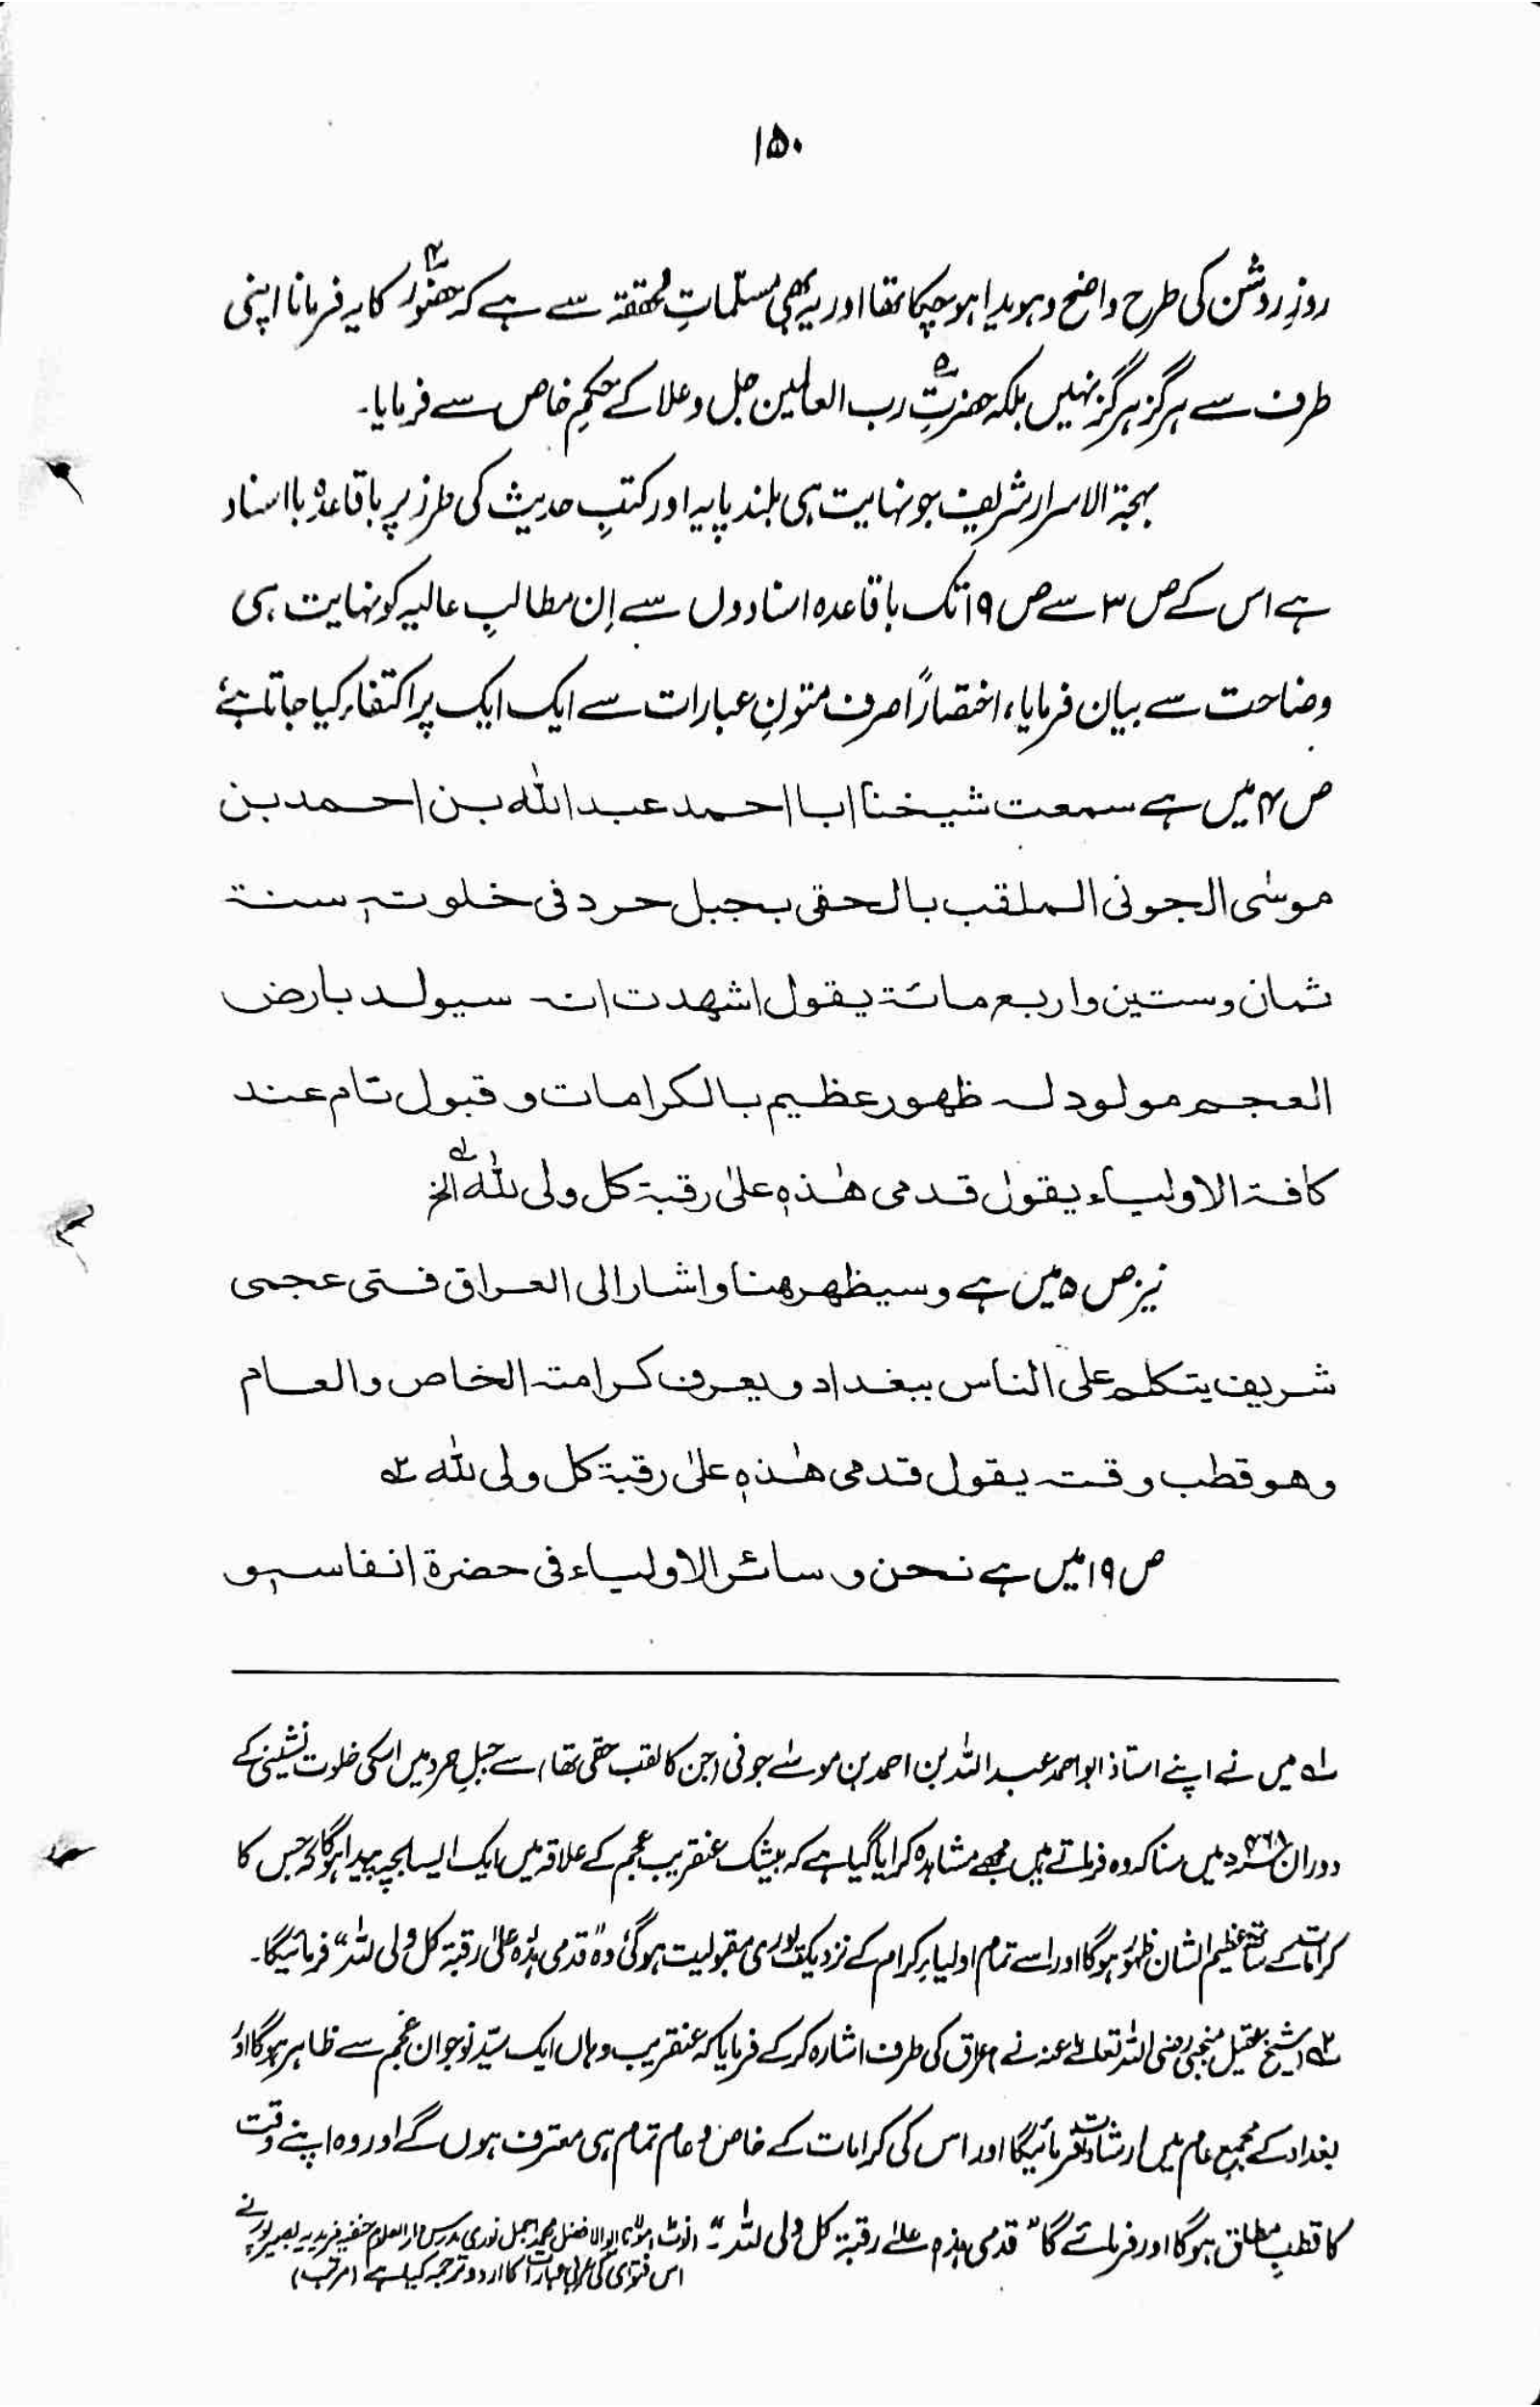 ۱۵۰
روزِ روشن کی طرح واضح وہویدا ہوچکا تھا اور یہ بھی مسلّماتِ محققہ سے ہے کہ حضور۴ کا یہ فرمانا اپنی
طرف سے ہرگز ہرگز نہیں بلکہ حضرتِ۵ رب العالمین جل وعلا کے حکمِ خاص سے فرمایا۔
بہجۃ الاسرار شریف جو نہایت ہی بلند پایہ اور کتبِ حدیث کی طرز پر باقاعدہ بااسناد
ہے اس کے ص ۳ سے ص ۱۹ تک باقاعدہ اسنادوں سے اِن مطالبِ عالیہ کو نہایت ہی
وضاحت سے بیان فرمایا، اختصاراً صرف متونِ عبارات سے ایک ایک پر اکتفاء کیا جاتا ہے
ص ۴ میں ہے سمعت شیخنا ابا احمد عبد اللہ بن احمد بن
موسٰی الجونی الملقب بالحقی بجبل حرد فی خلوتہٖ سنۃ
ثمان وستین واربع مائۃ یقول اشھدت انہ سیولد بارض
العجم مولود لہ ظھور عظیم بالکرامات و قبول تام عند
کافۃ الاولیاء یقول قدمی ھٰذہٖ علیٰ رقبۃ کل ولی للہ الخ ۱ے
نیز ص ۵ میں ہے وسیظھر ھنا واشار الی العراق فتی عجمی
شریف یتکلم علی الناس ببغداد ویعرف کرامتہ الخاص والعام
وھو قطب وقتہ یقول قدمی ھٰذہٖ علیٰ رقبۃ کل ولی للہ ۲ے
ص ۱۹ میں ہے نحن و سائر الاولیاء فی حضرۃ انفاسہٖ و
۱ے میں نے اپنے استاذ ابو احمد عبد اللہ بن احمد بن موسےٰ جونی (جن کا لقب حقی تھا) سے جبلِ حرد میں اسکی خلوت نشینی کے
دوران ۴۶۸ھ میں سنا کہ وہ فرماتے ہیں مجھے مشاہدہ کرایا گیا ہے کہ بیشک عنقریب عجم کے علاقہ میں ایک ایسا بچہ پیدا ہوگا کہ جس کا
کرامات کے ساتھ عظیم الشان ظہور ہوگا اور اسے تمام اولیاء کرام کے نزدیک پوری مقبولیت ہوگی وہ "قدمی ہٰذہ علیٰ رقبۃ کل ولی للہ" فرمائیگا۔
۲ے شیخ عقیل منجی رضی اللہ تعالےٰ عنہ نے عراق کی طرف اشارہ کرکے فرمایا کہ عنقریب وہاں ایک سیّد نوجوان عجم سے ظاہر ہوگا اور
بغداد کے مجمع عام میں ارشادات فرمائیگا اور اس کی کرامات کے خاص و عام تمام ہی معترف ہوں گے اور وہ اپنے وقت
کا قطبِ مطلق ہوگا اور فرمائے گا "قدمی ہذہٖ علےٰ رقبۃ کل ولی للہ"۔ (نوٹ: مولانا ابوالافضل محمد اجمل نوری مدرس دارالعلوم حنفیہ فریدیہ بصیرپور نے
اس فتوٰی کی عربی عبارات کا اردو ترجمہ کیا ہے (مرتب)